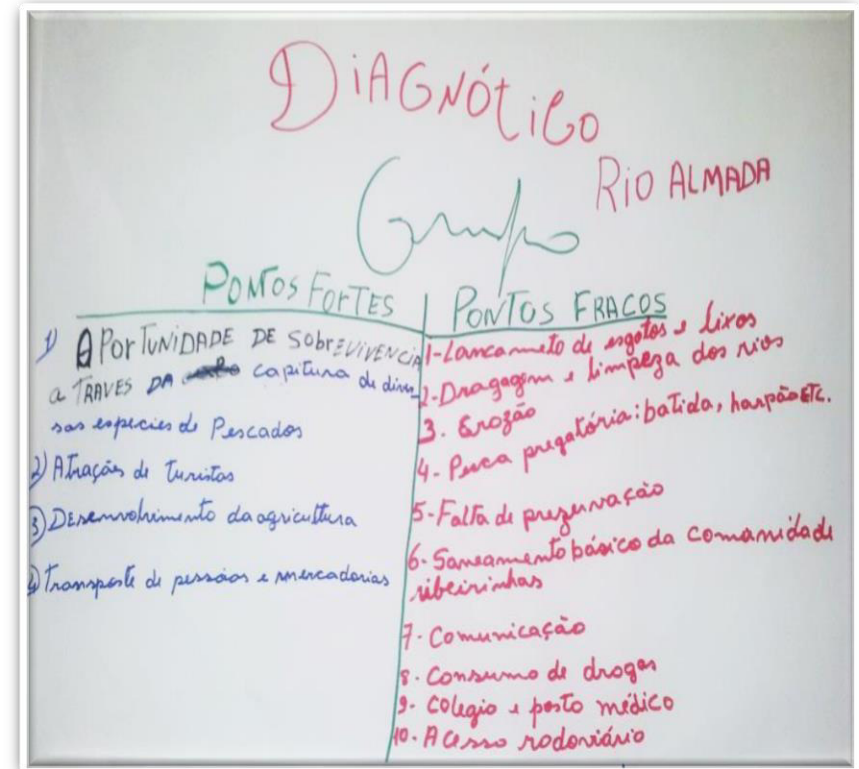 DiAGNÓtiCo
RIO ALMADA
Grupo
PONTOS FORTES
1) OPORTUNIDADE DE SobREVIVENCIA
a TRAVES DA capitura de diver-
sas especies de Pescados
2) Atrações de Turistas
3) Desenvolvimento da agricultura
4) Transporte de pessoas e mercadorias
PONTOS FRACOS
1-Lancameto de esgotos e lixos
2-Dragagem e limpeza dos rios
3. Erozão
4- Pesca pregatória: batida, harpão ETC.
5-Falta de prezervação
6- Saneamento básico da comanidade
ribeirinhas
7- Comunicação
8. Consumo de drogas
9- Colegio e posto médico
10- Acesso rodoviário